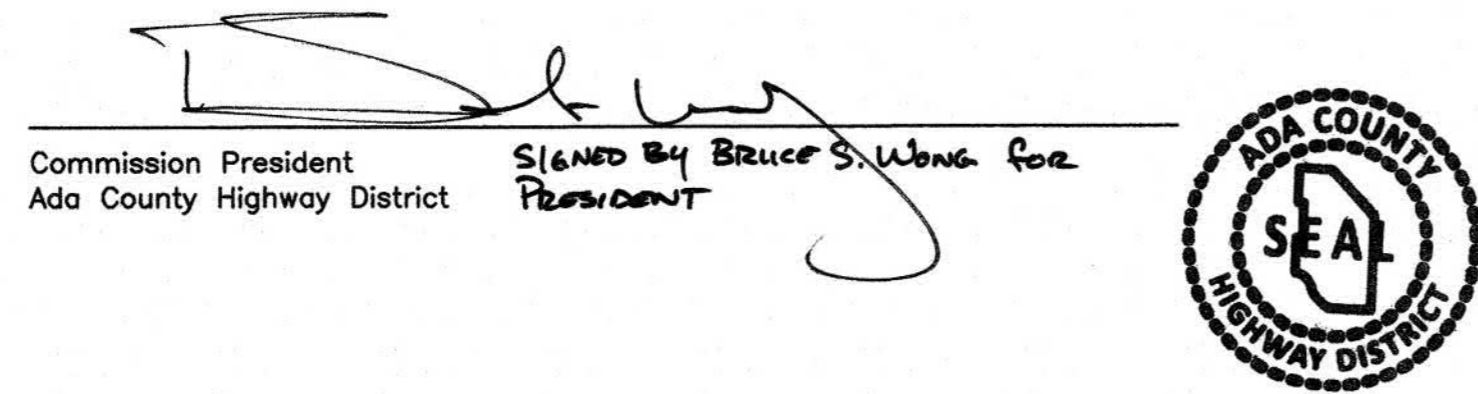 Commission President
Ada County Highway District
SIGNED BY BRUCE S. WONG FOR
PRESIDENT
ADA COUNTY
SEAL
HIGHWAY DISTRICT